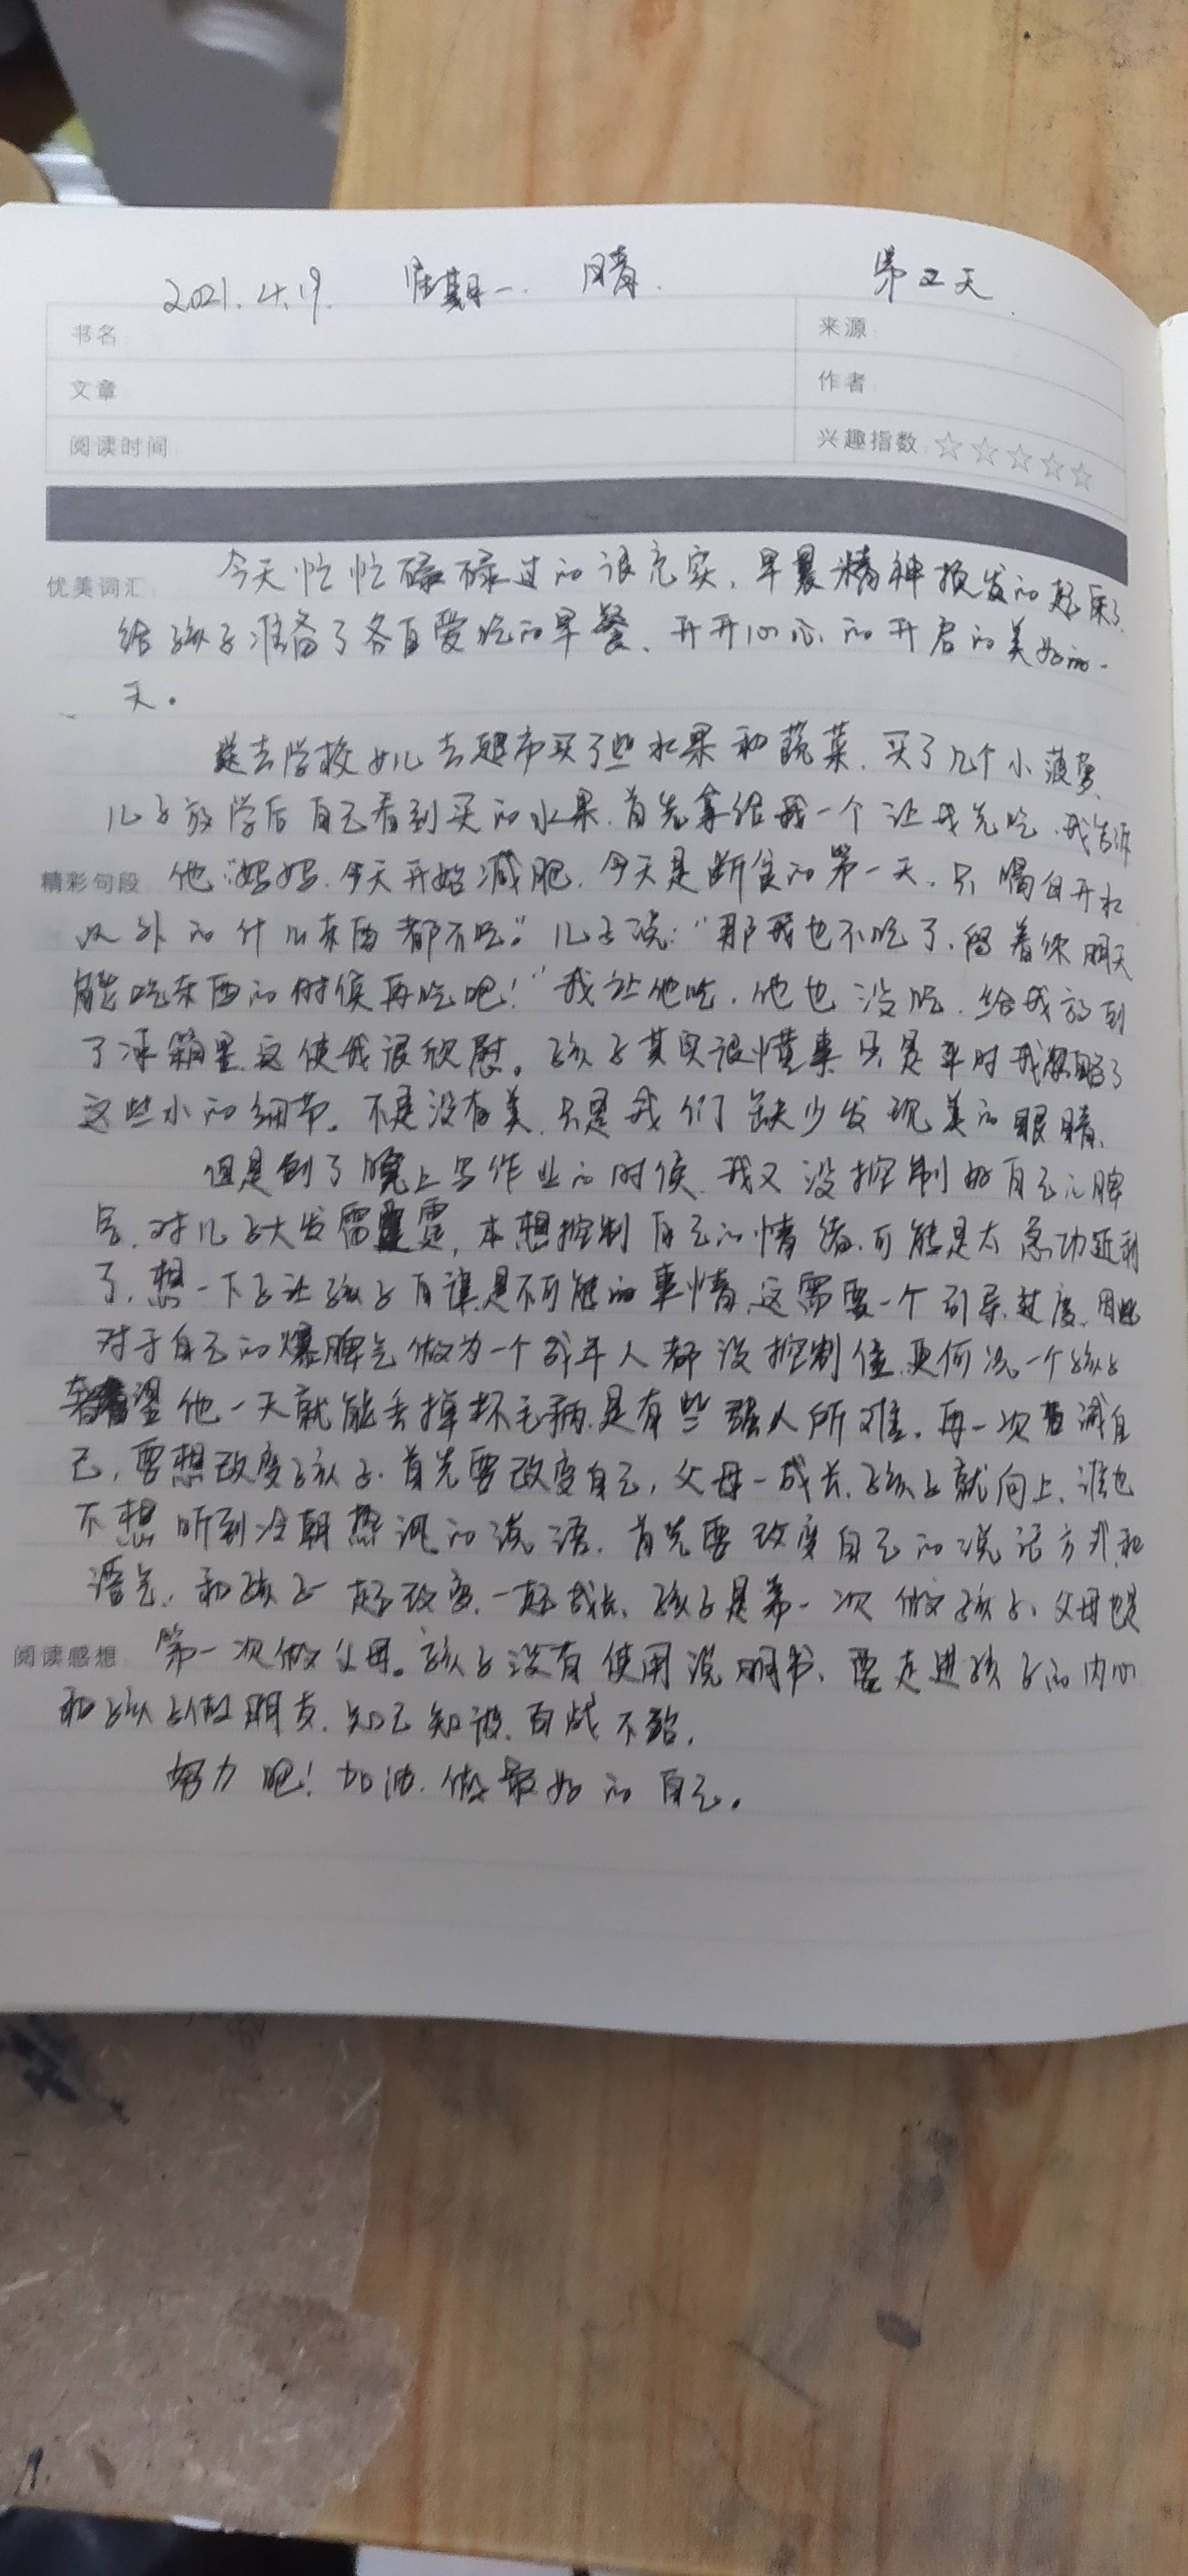 2021.4.19. 星期一. 晴. 第五天
书名
来源
文章
作者
阅读时间
兴趣指数 ☆☆☆☆☆
优美词汇
今天忙忙碌碌过的很充实，早晨精神焕发的起床了.
给孩子准备了各自爱吃的早餐、开开心心的开启的美好的一
天。
送去学校女儿去超市买了些水果和蔬菜，买了几个小菠萝、
儿子放学后自己看到买的水果，首先拿给我一个让我先吃，我告诉
精彩句段
他“妈妈，今天开始减肥，今天是断食的第一天，只喝白开水
以外的什么东西都不吃。”儿子说：“那我也不吃了，留着你明天
能吃东西的时候再吃吧！”我让他吃，他也没吃，给我放到
了冰箱里，这使我很欣慰。孩子其实很懂事只是平时我忽略了
这些小的细节。不是没有美，只是我们缺少发现美的眼睛、
但是到了晚上写作业的时候，我又没控制好自己的脾
气，对儿子大发雷霆，本想控制自己的情绪，可能是太急功近利
了，想一下子让孩子自律是不可能的事情，这需要一个引导过度，因此
对于自己的爆脾气做为一个成年人都没控制住，更何况一个孩子
奢望他一天就能丢掉坏毛病，是有些强人所难。再一次告诫自
己，要想改变孩子，首先要改变自己，父母一成长，孩子就向上，谁也
不想听到冷朝热讽的说语，首先要改变自己的说话方式和
语气，和孩子一起改变，一起成长，孩子是第一次做孩子、父母也是
阅读感想
第一次做父母。孩子没有使用说明书、要走进孩子的内心
和孩子做朋友，知己知彼，百战不殆，
努力吧！加油，做最好的自己。